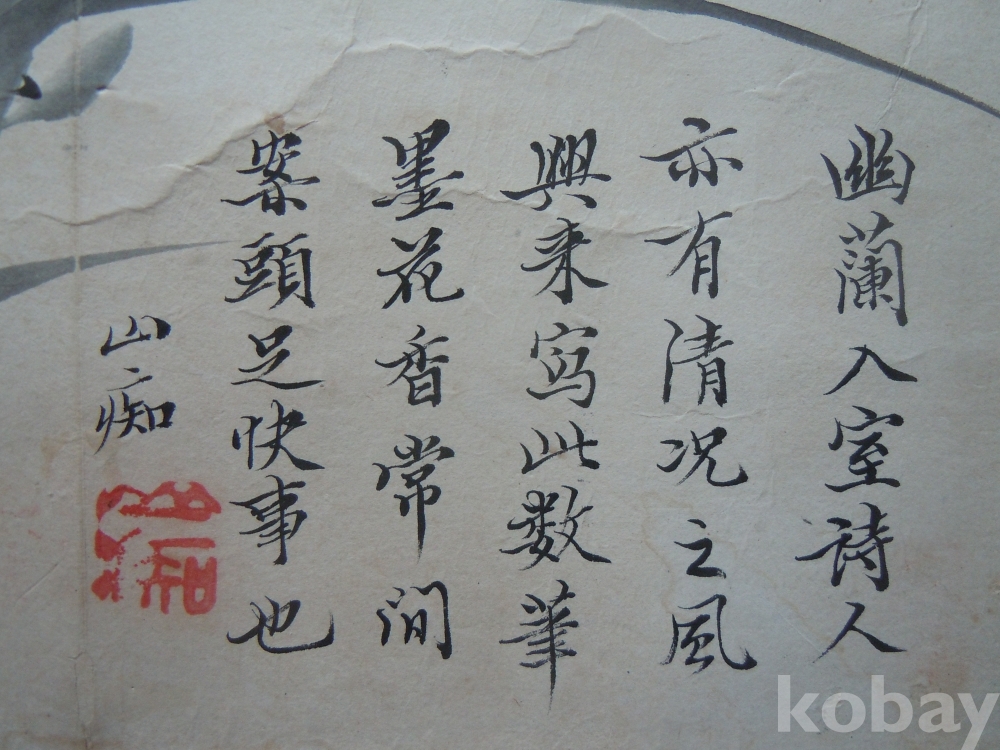 幽蘭入室詩人
亦有清况之風
興来写此数筆
墨花香常澗
案頭足快事也
山痴
kobay